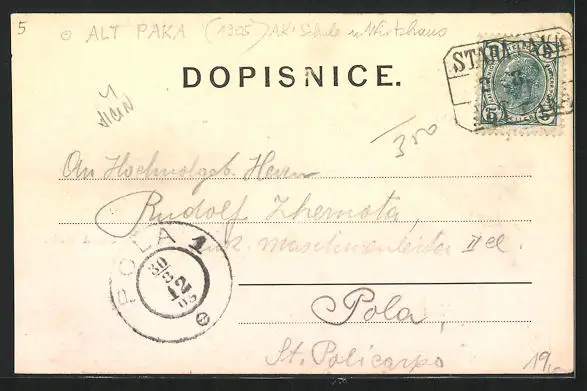 5
ALT PAKA (1905) AK: Schule u. Wirtshaus
DOPISNICE.
STARÁ PAKA
350
An Hochwolgeb. Herrn
Rudolf Zhernota,
k.u.k. Maschinenleiter II Cl.
POLA 1
30/8
12
05
e
Pola,
St. Policarpo